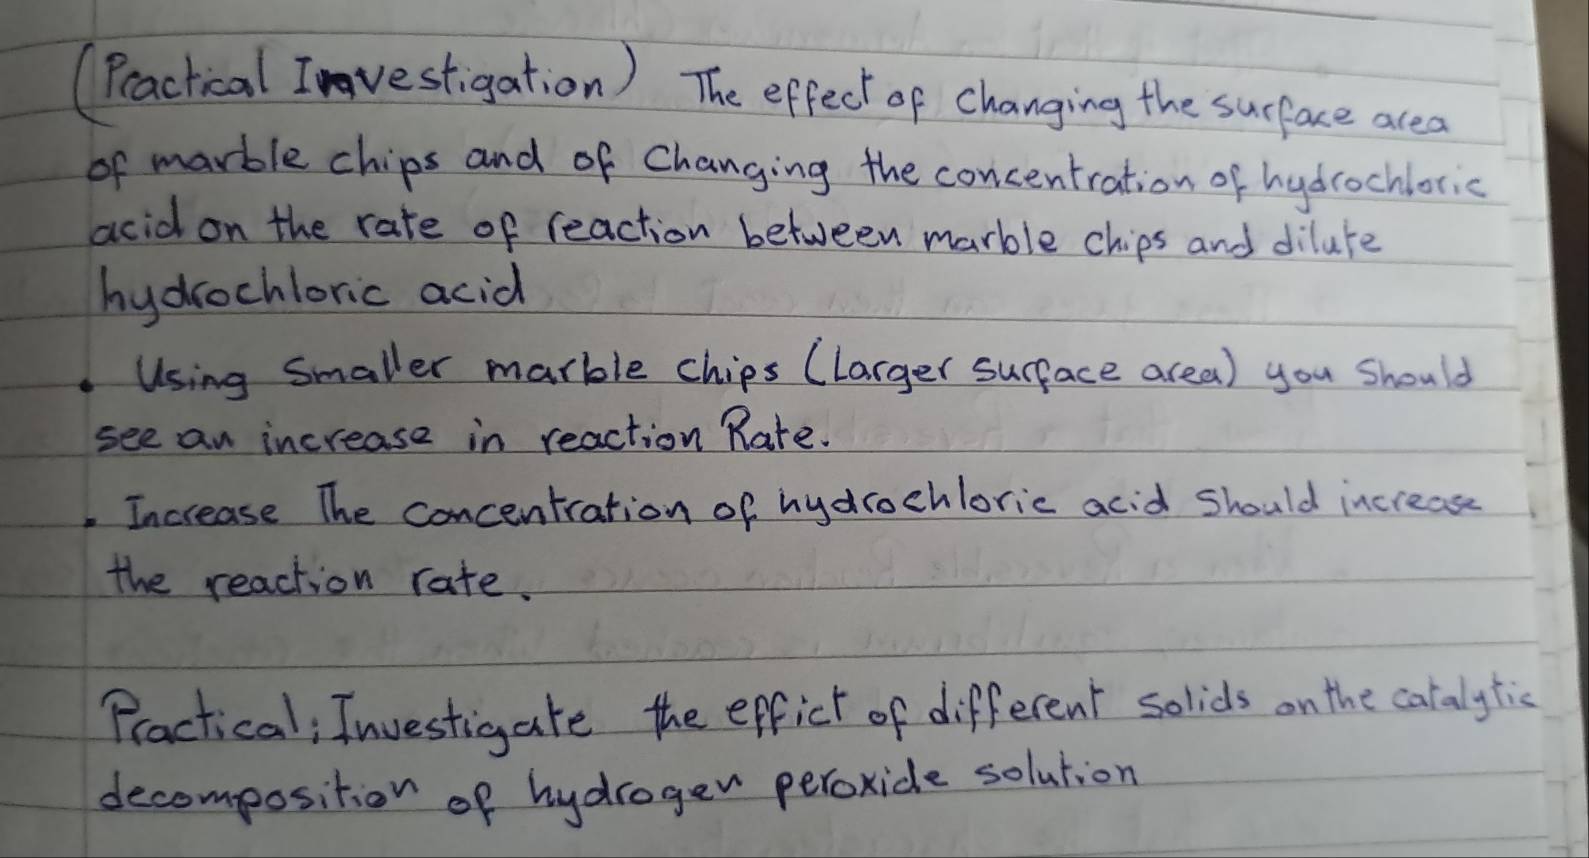 (Practical Investigation) The effect of changing the surface area
of marble chips and of Changing the concentration of hydrochloric
acid on the rate of reaction between marble chips and dilute
hydrochloric acid
• Using Smaller marble chips (Larger surface area) you Should
see an increase in reaction Rate.
• Increase The concentration of hydrochloric acid Should increase
the reaction rate.
Practical; Investigate the effict of different solids on the catalytic
decomposition of hydrogen peroxide solution